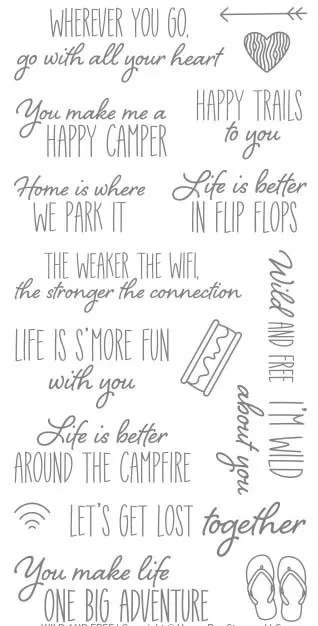 WHEREVER YOU GO,
go with all your heart
You make me a
HAPPY CAMPER
HAPPY TRAILS
to you
Home is where
WE PARK IT
Life is better
IN FLIP FLOPS
THE WEAKER THE WIFI,
the stronger the connection
Wild AND FREE
LIFE IS S'MORE FUN
with you
I'M WILD
about you
Life is better
AROUND THE CAMPFIRE
LET'S GET LOST together
You make life
ONE BIG ADVENTURE
WILD AND FREE